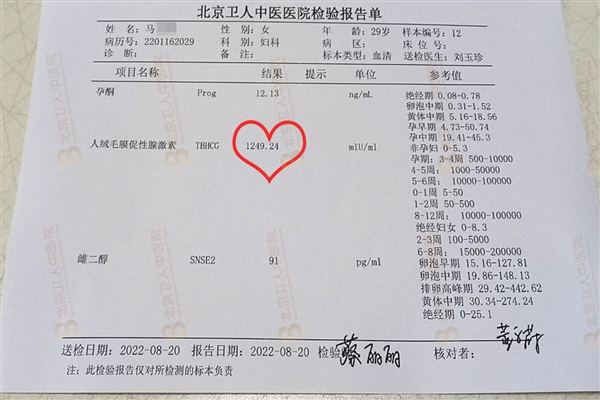 北京卫人中医医院检验报告单
姓 名: 马 性 别: 女 年 龄: 29岁 样本编号: 12
病历号: 2201162029 科 别: 妇科 病 区: 床 位 号:
诊 断: 备 注: 标本类型: 血清 送检医生: 刘玉珍
项目名称 结果 提示 单位 参考值
孕酮 Prog 12.13 ng/mL 绝经期 0.08-0.78
卵泡中期 0.31-1.52
黄体中期 5.16-18.56
孕早期 4.73-50.74
孕中期 19.41-45.3
人绒毛膜促性腺激素 TBHCG 1249.24 mIU/ml 非孕妇 0-5.3
孕期: 3-4周 500-10000
4-5周: 1000-50000
5-6周: 10000-100000
0-1周 5-50
1-2周 50-500
8-12周: 10000-100000
绝经妇女 0-8.3
2-3周 100-5000
6-8周: 15000-200000
雌二醇 SNSE2 91 pg/ml 卵泡早期 15.16-127.81
卵泡中期 19.86-148.13
排卵高峰期 29.42-442.62
黄体中期 30.34-274.24
绝经期 0-25.1
送检日期: 2022-08-20 报告日期: 2022-08-20 检验 蔡丽丽 核对者:
注: 此检验报告仅对所检测的标本负责
北京卫人中医院